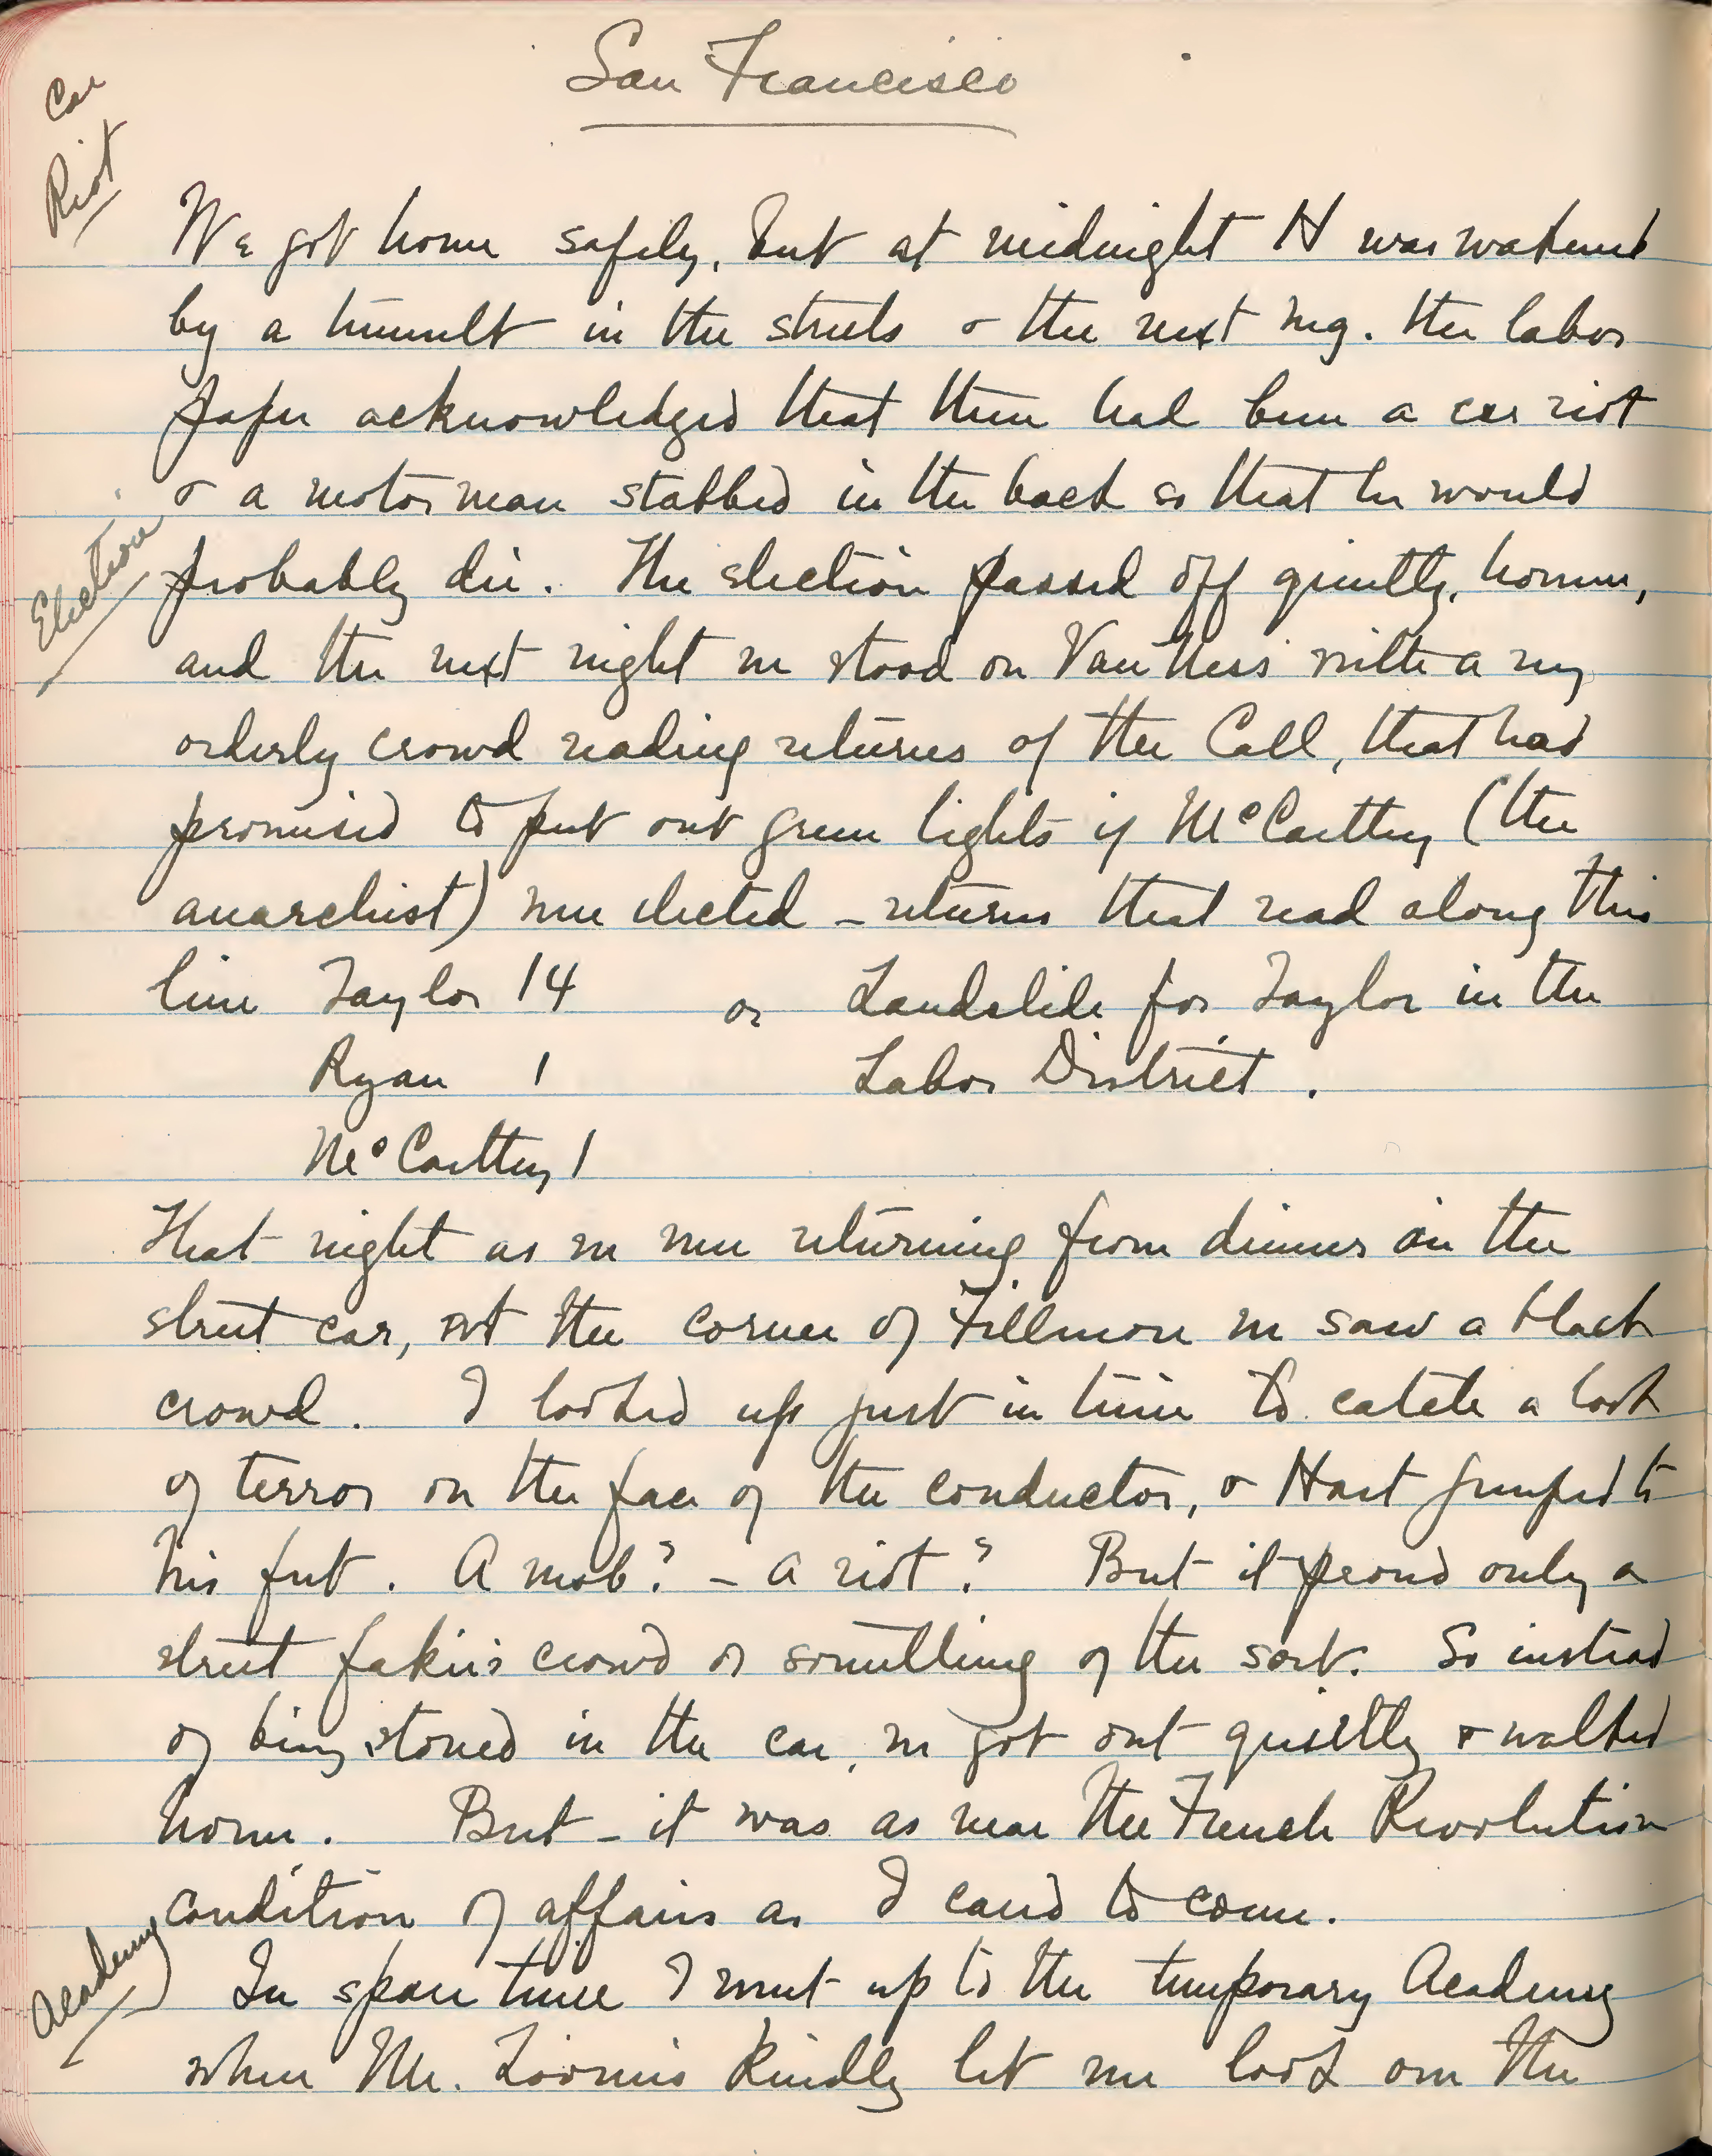 San Francisco
Car
Riot
We got home safely, but at midnight H was wakened
by a tumult in the streets & the next mg. the labor
paper acknowledged that there had been a car riot
& a motorman stabbed in the back so that he would
Election
probably die. The election passed off quietly, however,
and the next night we stood on Van Ness with a very
orderly crowd reading returns of the Call, that had
promised to put out green lights if McCarthy (the
anarchist) were elected – returns that read along this
line Taylor 14 or Landslide for Taylor in the
Ryan 1 Labor District.
McCarthy 1
That night as we were returning from dinner on the
street car, at the corner of Fillmore we saw a black
crowd. I looked up just in time to catch a look
of terror on the face of the conductor, & Hart jumped to
his feet. A mob? – a riot? But it proved only a
street fakir's crowd or something of the sort. So instead
of being stoned in the car, we got out quietly & walked
home. But – it was as near the French Revolution
condition of affairs as I cared to come.
Academy
In spare time I went up to the temporary Academy
where Mr. Loomis kindly let me look over the